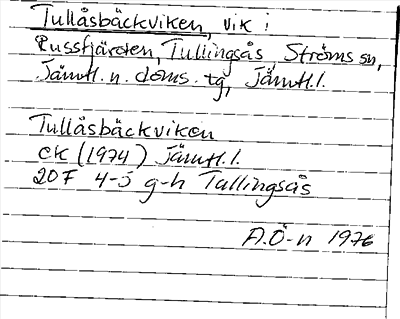 Tullåsbäckviken, vik i
Russfjärden, Tullingsås, Ströms sn,
Jämtl. n. doms. tg, Jämtl. l.
Tullåsbäckviken
EK (1974) Jämtl. l.
20F 4-5 g-h Tullingsås
A.Ö-n 1976